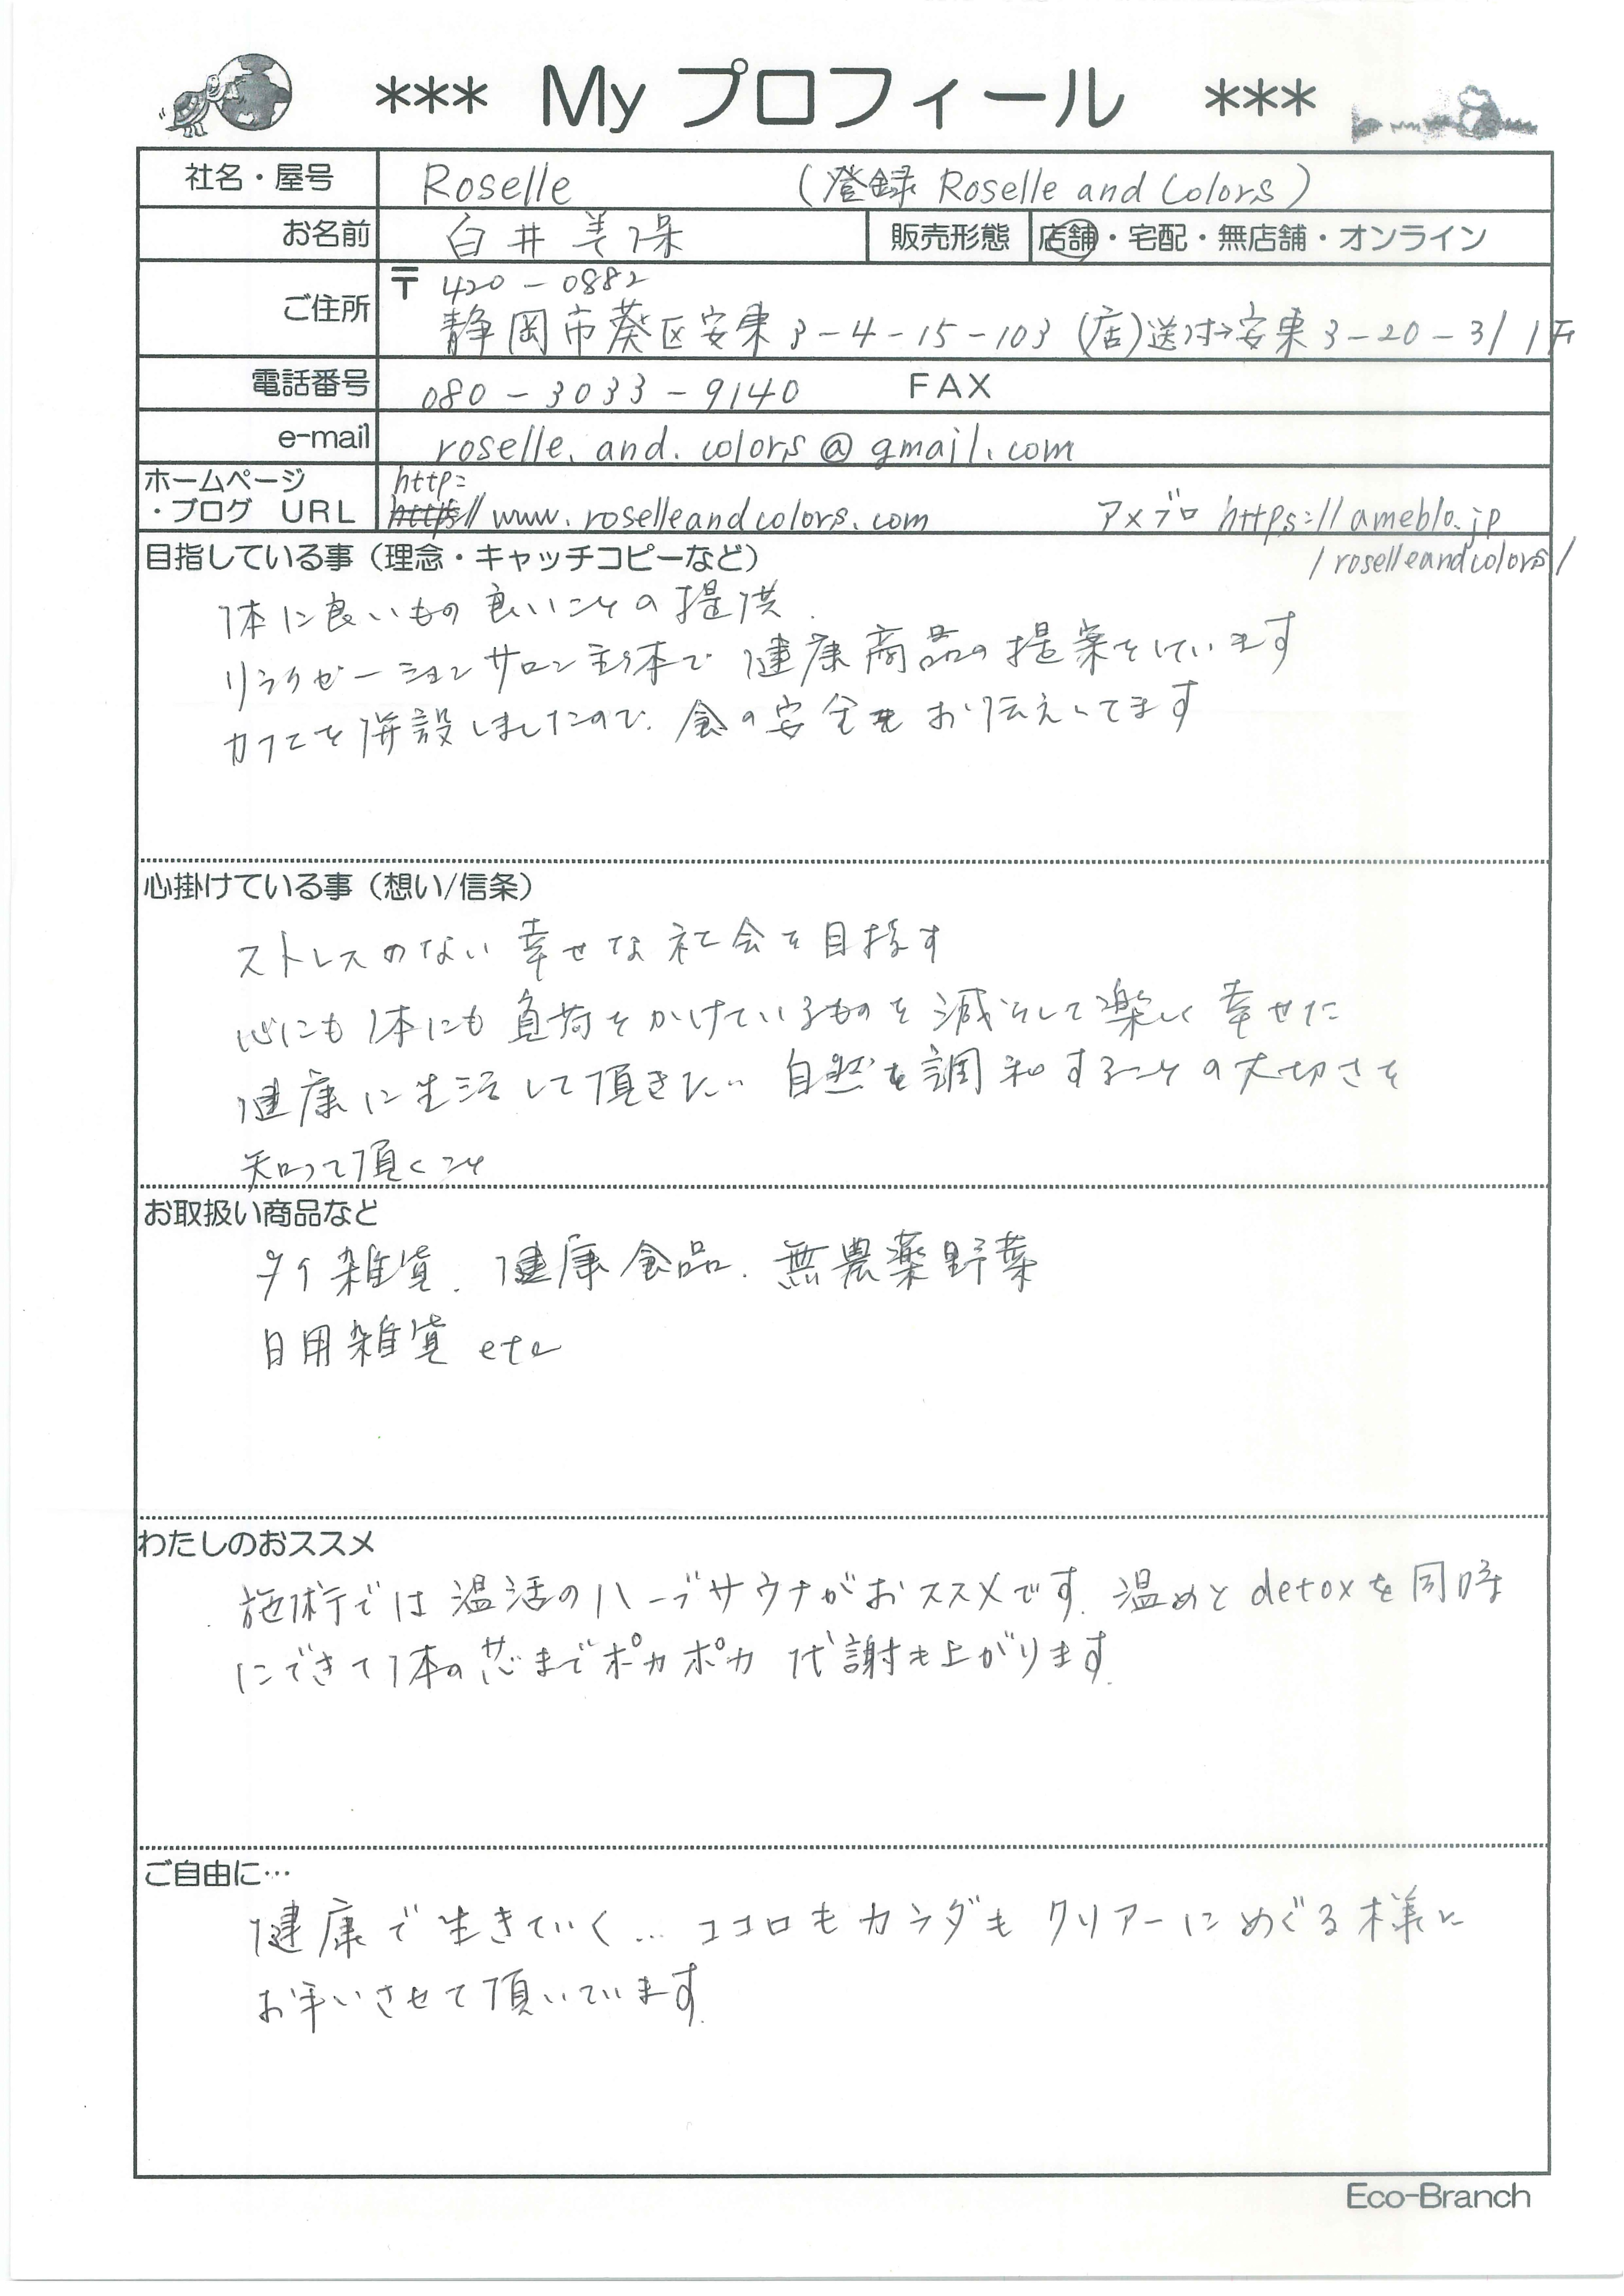 *** My プロフィール ***
社名・屋号 Roselle (登録 Roselle and Colors)
お名前 白井 美保 販売形態 店舗・宅配・無店舗・オンライン
ご住所 〒 420-0882
静岡市葵区安東3-4-15-103 (店)送付→安東3-20-3/1F
電話番号 080-3033-9140 FAX
e-mail roselle.and.colors@gmail.com
ホームページ http:
・ブログ URL https// www.roselleandcolors.com アメブロ https://ameblo.jp
/roselleandcolors/
目指している事（理念・キャッチコピーなど）
体に良いもの 良いことの提供.
リラクゼーションサロン主体で 健康商品の提案をしています
カフェを併設しましたので、食の安全をお伝えしてます
心掛けている事（想い/信条）
ストレスのない 幸せな社会を目指す
心にも体にも負荷をかけているものを減らして楽しく幸せに
健康に生活して頂きたい 自然を調和することの大切さを
知って頂くこと
お取扱い商品など
タイ雑貨. 健康食品. 無農薬野菜
日用雑貨 etc
わたしのおススメ
施術では温活のハーブサウナがおススメです. 温めとdetoxを同時
にできて体の芯までポカポカ 代謝も上がります.
ご自由に…
健康で生きていく… ココロもカラダもクリアーにめぐる様に
お手いさせて頂いています.
Eco-Branch